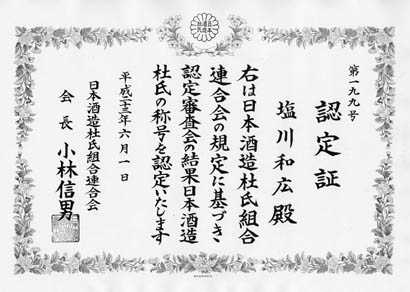 第一九九号
認定証
塩川和広殿
右は日本酒造杜氏組合
連合会の規定に基づき
認定審査会の結果日本酒造
杜氏の称号を認定いたします
平成二十三年六月一日
日本酒造杜氏組合連合会
会長 小林信男